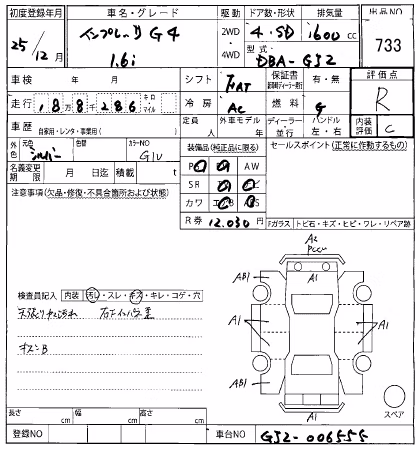 初度登録年月 車名・グレード 駆動 ドア数・形状 排気量 出品NO
25年 インプレッサ G4 2WD 4.5D 1600cc 733
12月 1.6i 4WD 型式 DBA-GJ2
車検 年 月 シフト FAT 保証書 有・無 評価点
走行 18万8千286 キロ・マイル 冷房 AC 燃料 G R
車歴 自家用・レンタ・事業用( ) 定員 人 外車モデル 年 ディーラー・並行 ハンドル 左・右 内装評価 C
外色 元色 シルバー 色替 カラーNO G1U 装備品(純正品に限る) セールスポイント(正常に作動するもの)
名義変更期限 月 日迄 積載 t AW
注意事項(欠品・修復・不具合箇所および状態) SR
カワ
R券 12.030円
Fガラス トビ石・キズ・ヒビ・ワレ・リペア跡
A2
AB1 A1
A1 A1
検査員記入 内装 汚レ・スレ・キズ・キレ・コゲ・穴
キズ、B
AB1 AB1
A1 スペア
長さ cm 幅 cm 高さ cm
登録NO 車台NO GJ2-006555